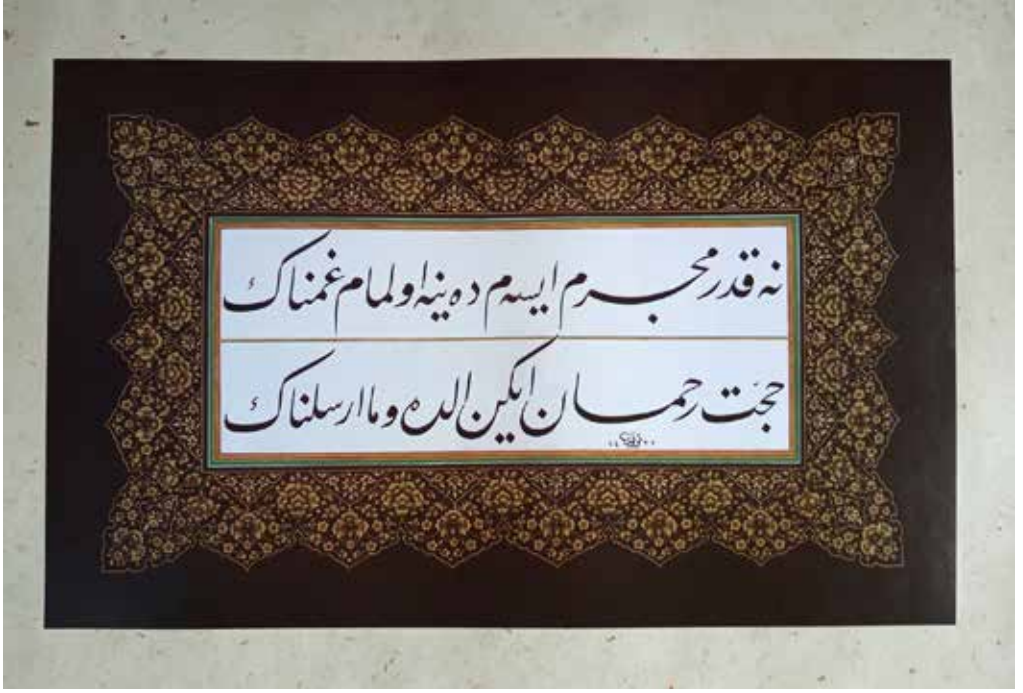 نه قدر مجرم ایسه م ده ینه اولمام غمناك
حجت رحمان ایکن الده و ما ارسلناك